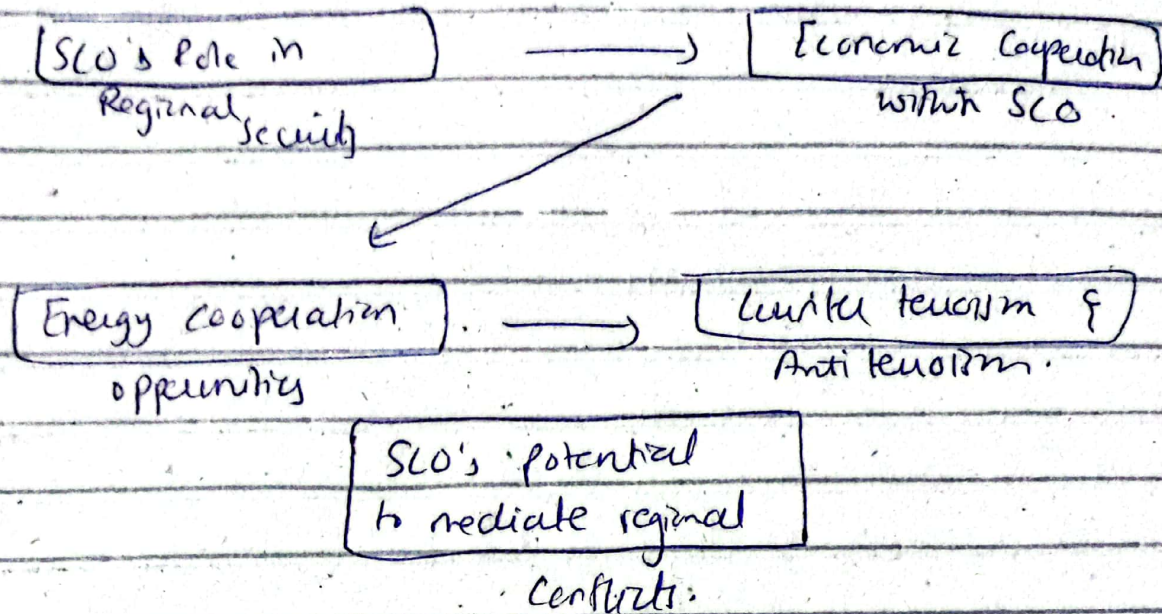 SCO's Role in
Regional security
Economic Cooperation
within SCO
Energy cooperation
opportunities
Counter terrorism &
Anti terrorism.
SCO's potential
to mediate regional
Conflicts.